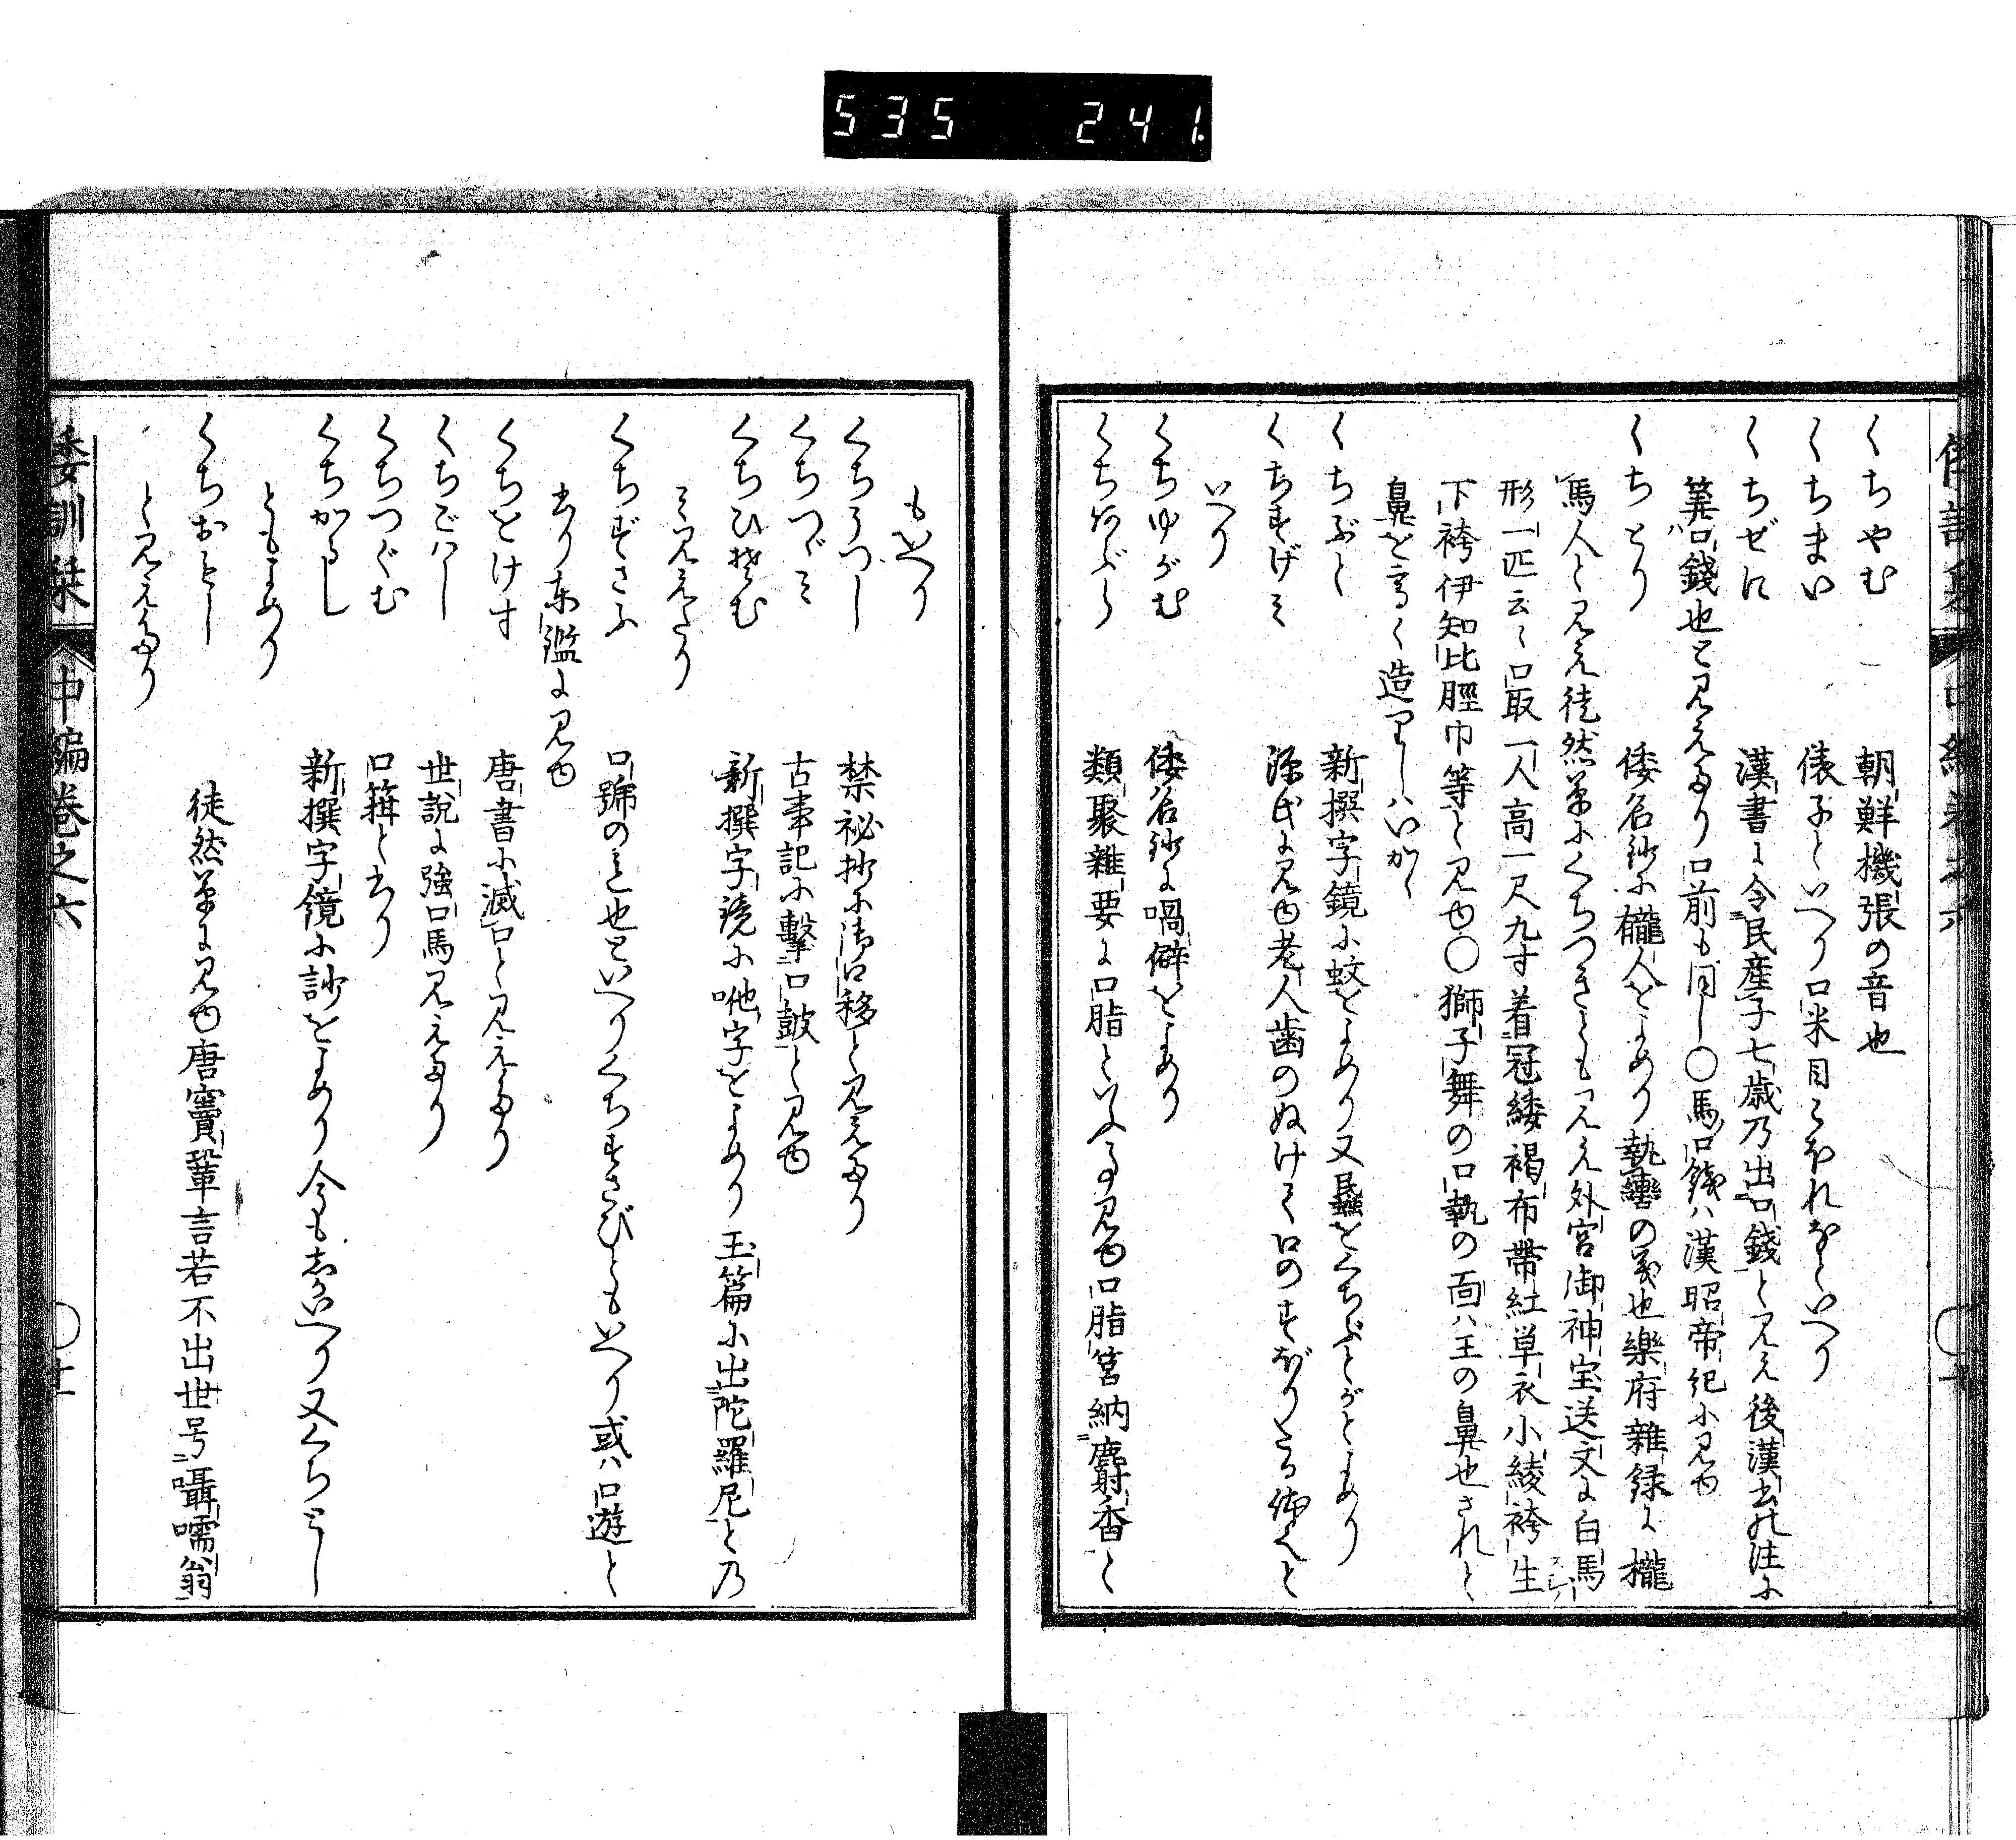 535 241.
くちやむ 朝鮮機張の音也
くちまい 俵子といへり口米目こぼれなといへり
くちぜに 漢書に令民産子七歳乃出口錢と見え後漢書の注に
筭口錢也と見えたり口前も同し〇馬口錢ハ漢昭帝紀に見ゆ
くちとり 倭名鈔に櫳人をよめり執轡の義也樂府雜録に櫳
馬人と見え徒然草にくちつきともみえ外宮御神宝送文に白馬
形一匹云々口取一人高一尺九寸着冠緌褐布帶紅単衣小綾袴生
下袴伊知比脛巾等と見ゆ〇獅子舞の口執の面ハ王の鼻也されと
鼻を高く造りしハいかゝ
くちぶと 新撰字鏡に蚊をよめり又𧔥をくちぶとがとよめり
くちすげミ 源氏に見ゆ老人歯のぬけて口のすぼりたる体也と
いへり
くちゆがむ 倭名鈔に喎僻をよめり
くちあぶら 類聚雜要に口脂といふ事見ゆ口脂筥納麝香と
もいへり
くちうつし 禁祕抄に御口移と見えたり
くちつゞミ 古事記に擊口鼓と見ゆ
くちひそむ 新撰字鏡に吔字をよめり玉篇に出陀羅尼と乃
ミ見えたり
くちずさふ 口號のこと也といへりくちすさびともいへり或ハ口遊と
書り東鑑に見ゆ
くちをけす 唐書に滅口と見えたり
くちごハし 世說に強口馬見えたり
くちつぐむ 口箝と書り
くちかるし 新撰字鏡に訬をよめり今も志かいへり又くちとし
ともよめり
くちおもし 徒然草に見ゆ唐竇鞏言若不出世号囁嚅翁
と見えたり
倭訓栞 中編巻之六 〇十一